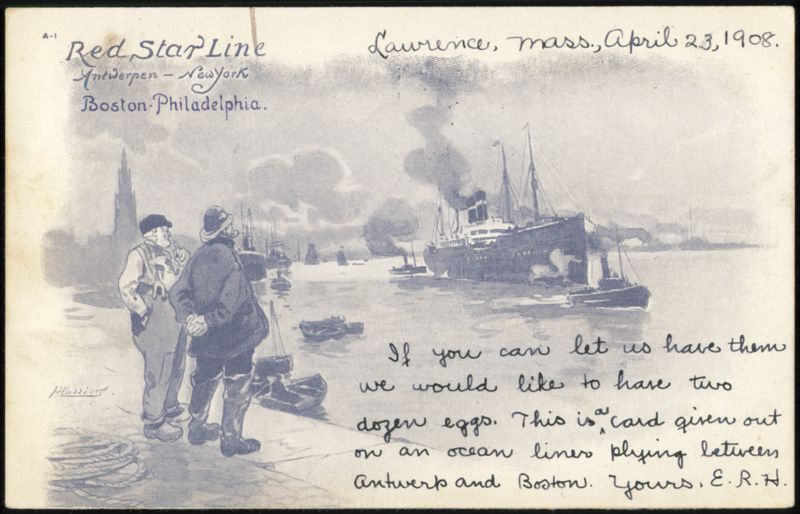 A-1
Red Star Line
Antwerpen – New York
Boston · Philadelphia.
Lawrence, Mass., April 23, 1908.
If you can let us have them
we would like to have two
dozen eggs. This is a card given out
on an ocean liner plying between
Antwerp and Boston. Yours, E. R. H.